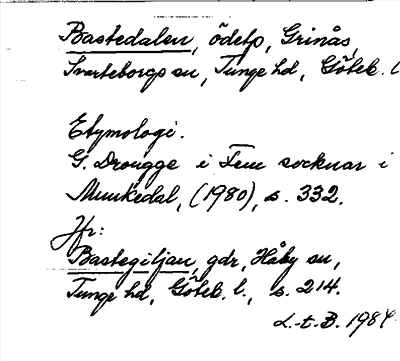 Bastedalen, ödetp, Grinås,
Svarteborgs sn, Tunge hd, Göteb. l
Etymologi.
G. Drougge i Fem socknar i
Munkedal, (1980), s. 332.
Jfr:
Bastegiljan, gdr, Håby sn,
Tunge hd, Göteb. l., s. 214.
L.-t. B. 1984